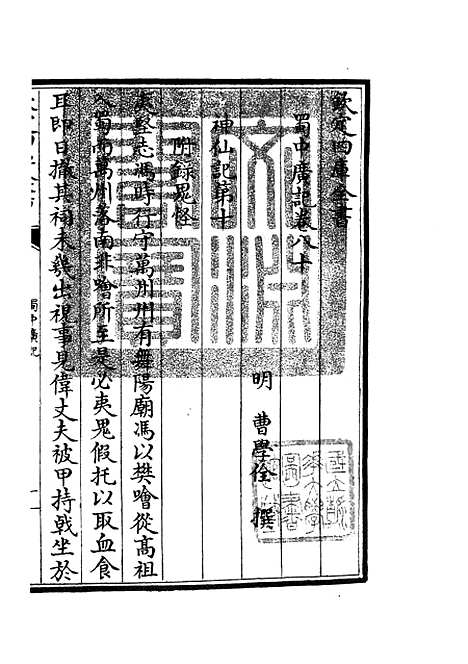 欽定四庫全書
蜀中廣記卷八十
明 曹學佺 撰
神仙記第十
附錄鬼怪
夷堅志馮時行守萬州州有舞陽廟馮以樊噲從高祖
入蜀而萬州落南非噲所至是必夷鬼假托以取血食
耳即日撤其祠未幾出視事見偉丈夫被甲持戟坐於
蜀中廣記